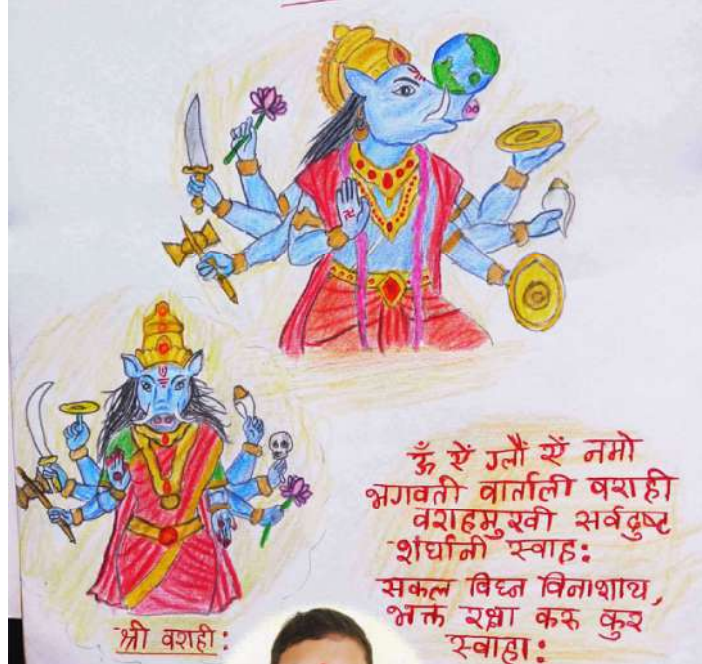 ॐ ऐं ग्लौं ऐं नमो
भगवती वार्ताली वराही
वराहमुखी सर्वदुष्ट
शंर्घानी स्वाह:
सकल विघ्न विनाशाय,
भक्त रक्षा करू कुर
स्वाहा:
श्री वराही: